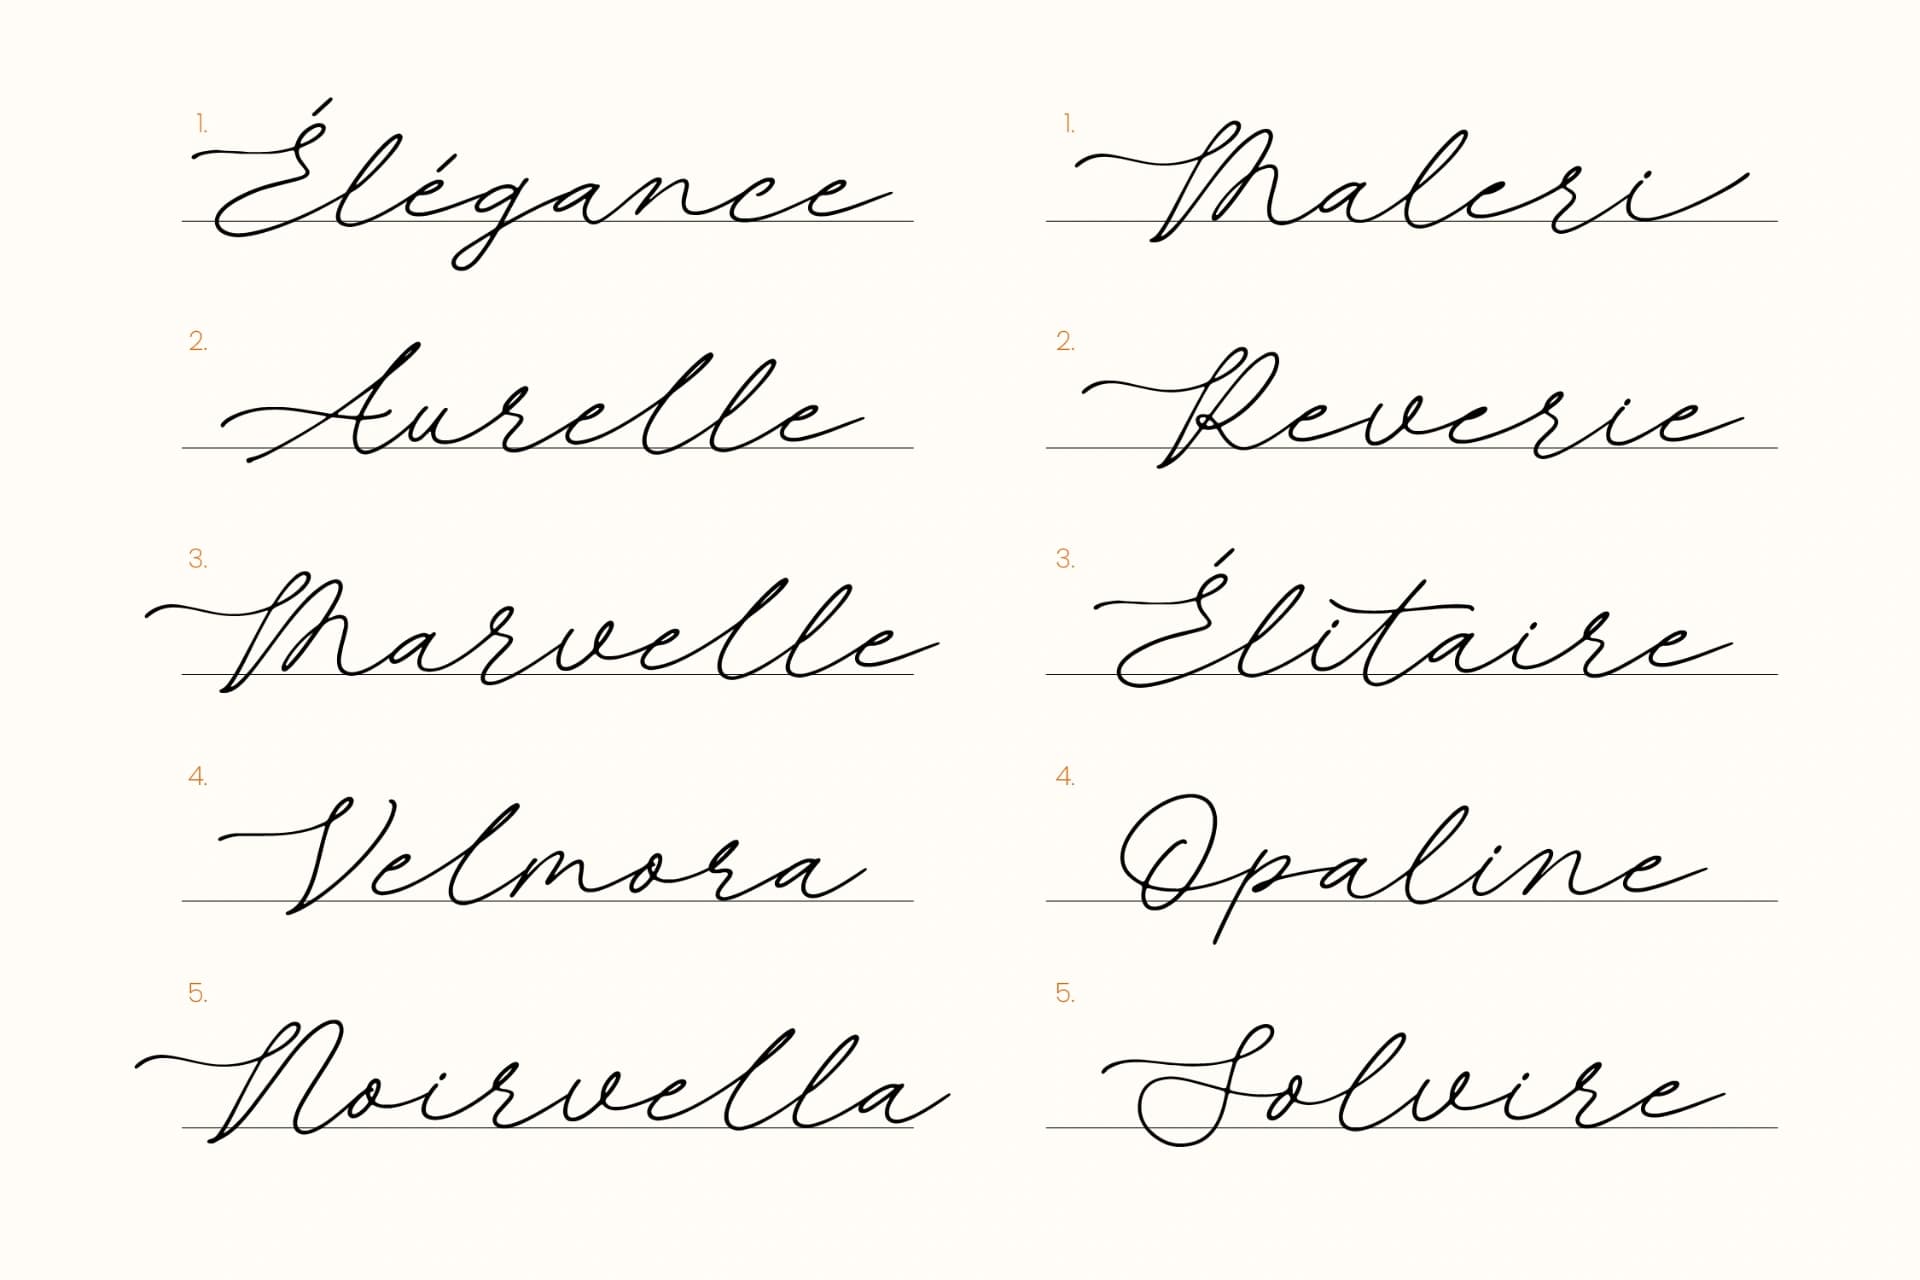 1. Élégance
2. Aurelle
3. Marvelle
4. Velmora
5. Noirvella
1. Maleri
2. Reverie
3. Élitaire
4. Opaline
5. Solvire